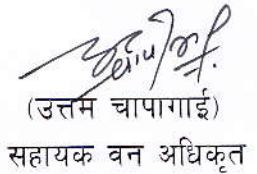 (उत्तम चापागाई)
सहायक वन अधिकृत